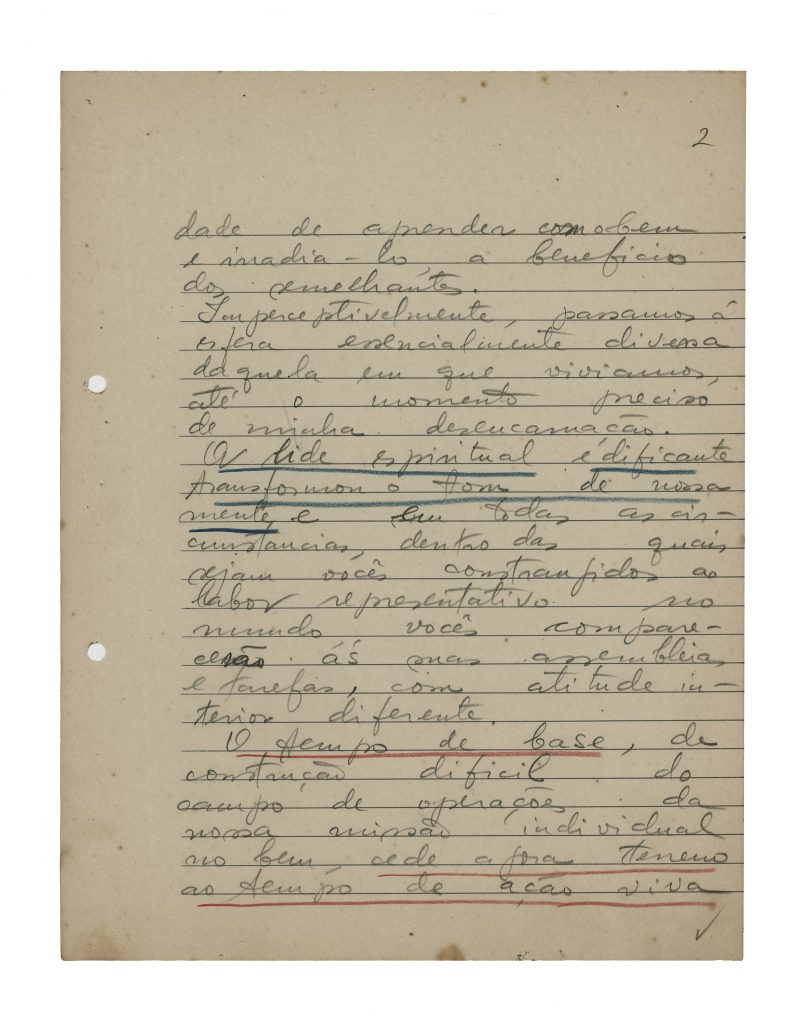 2
dade de aprender com o bem
e irradia-lo, a beneficio
dos semelhantes.
Imperceptivelmente, passamos á
esfera essencialmente diversa
daquela em que viviamos,
até o momento preciso
de minha desencarnação.
A lide espiritual edificante
transformou o tom de nossa
mente, e em todas as cir-
cunstancias, dentro das quais
sejam vocês constrangidos ao
labor representativo no
mundo vocês compare-
cerão ás suas assembleias
e tarefas, com atitude in-
terior diferente.
O tempo de base, de
construção dificil do
campo de operações da
nossa missão individual
no bem, cede agora terreno
ao tempo de ação viva